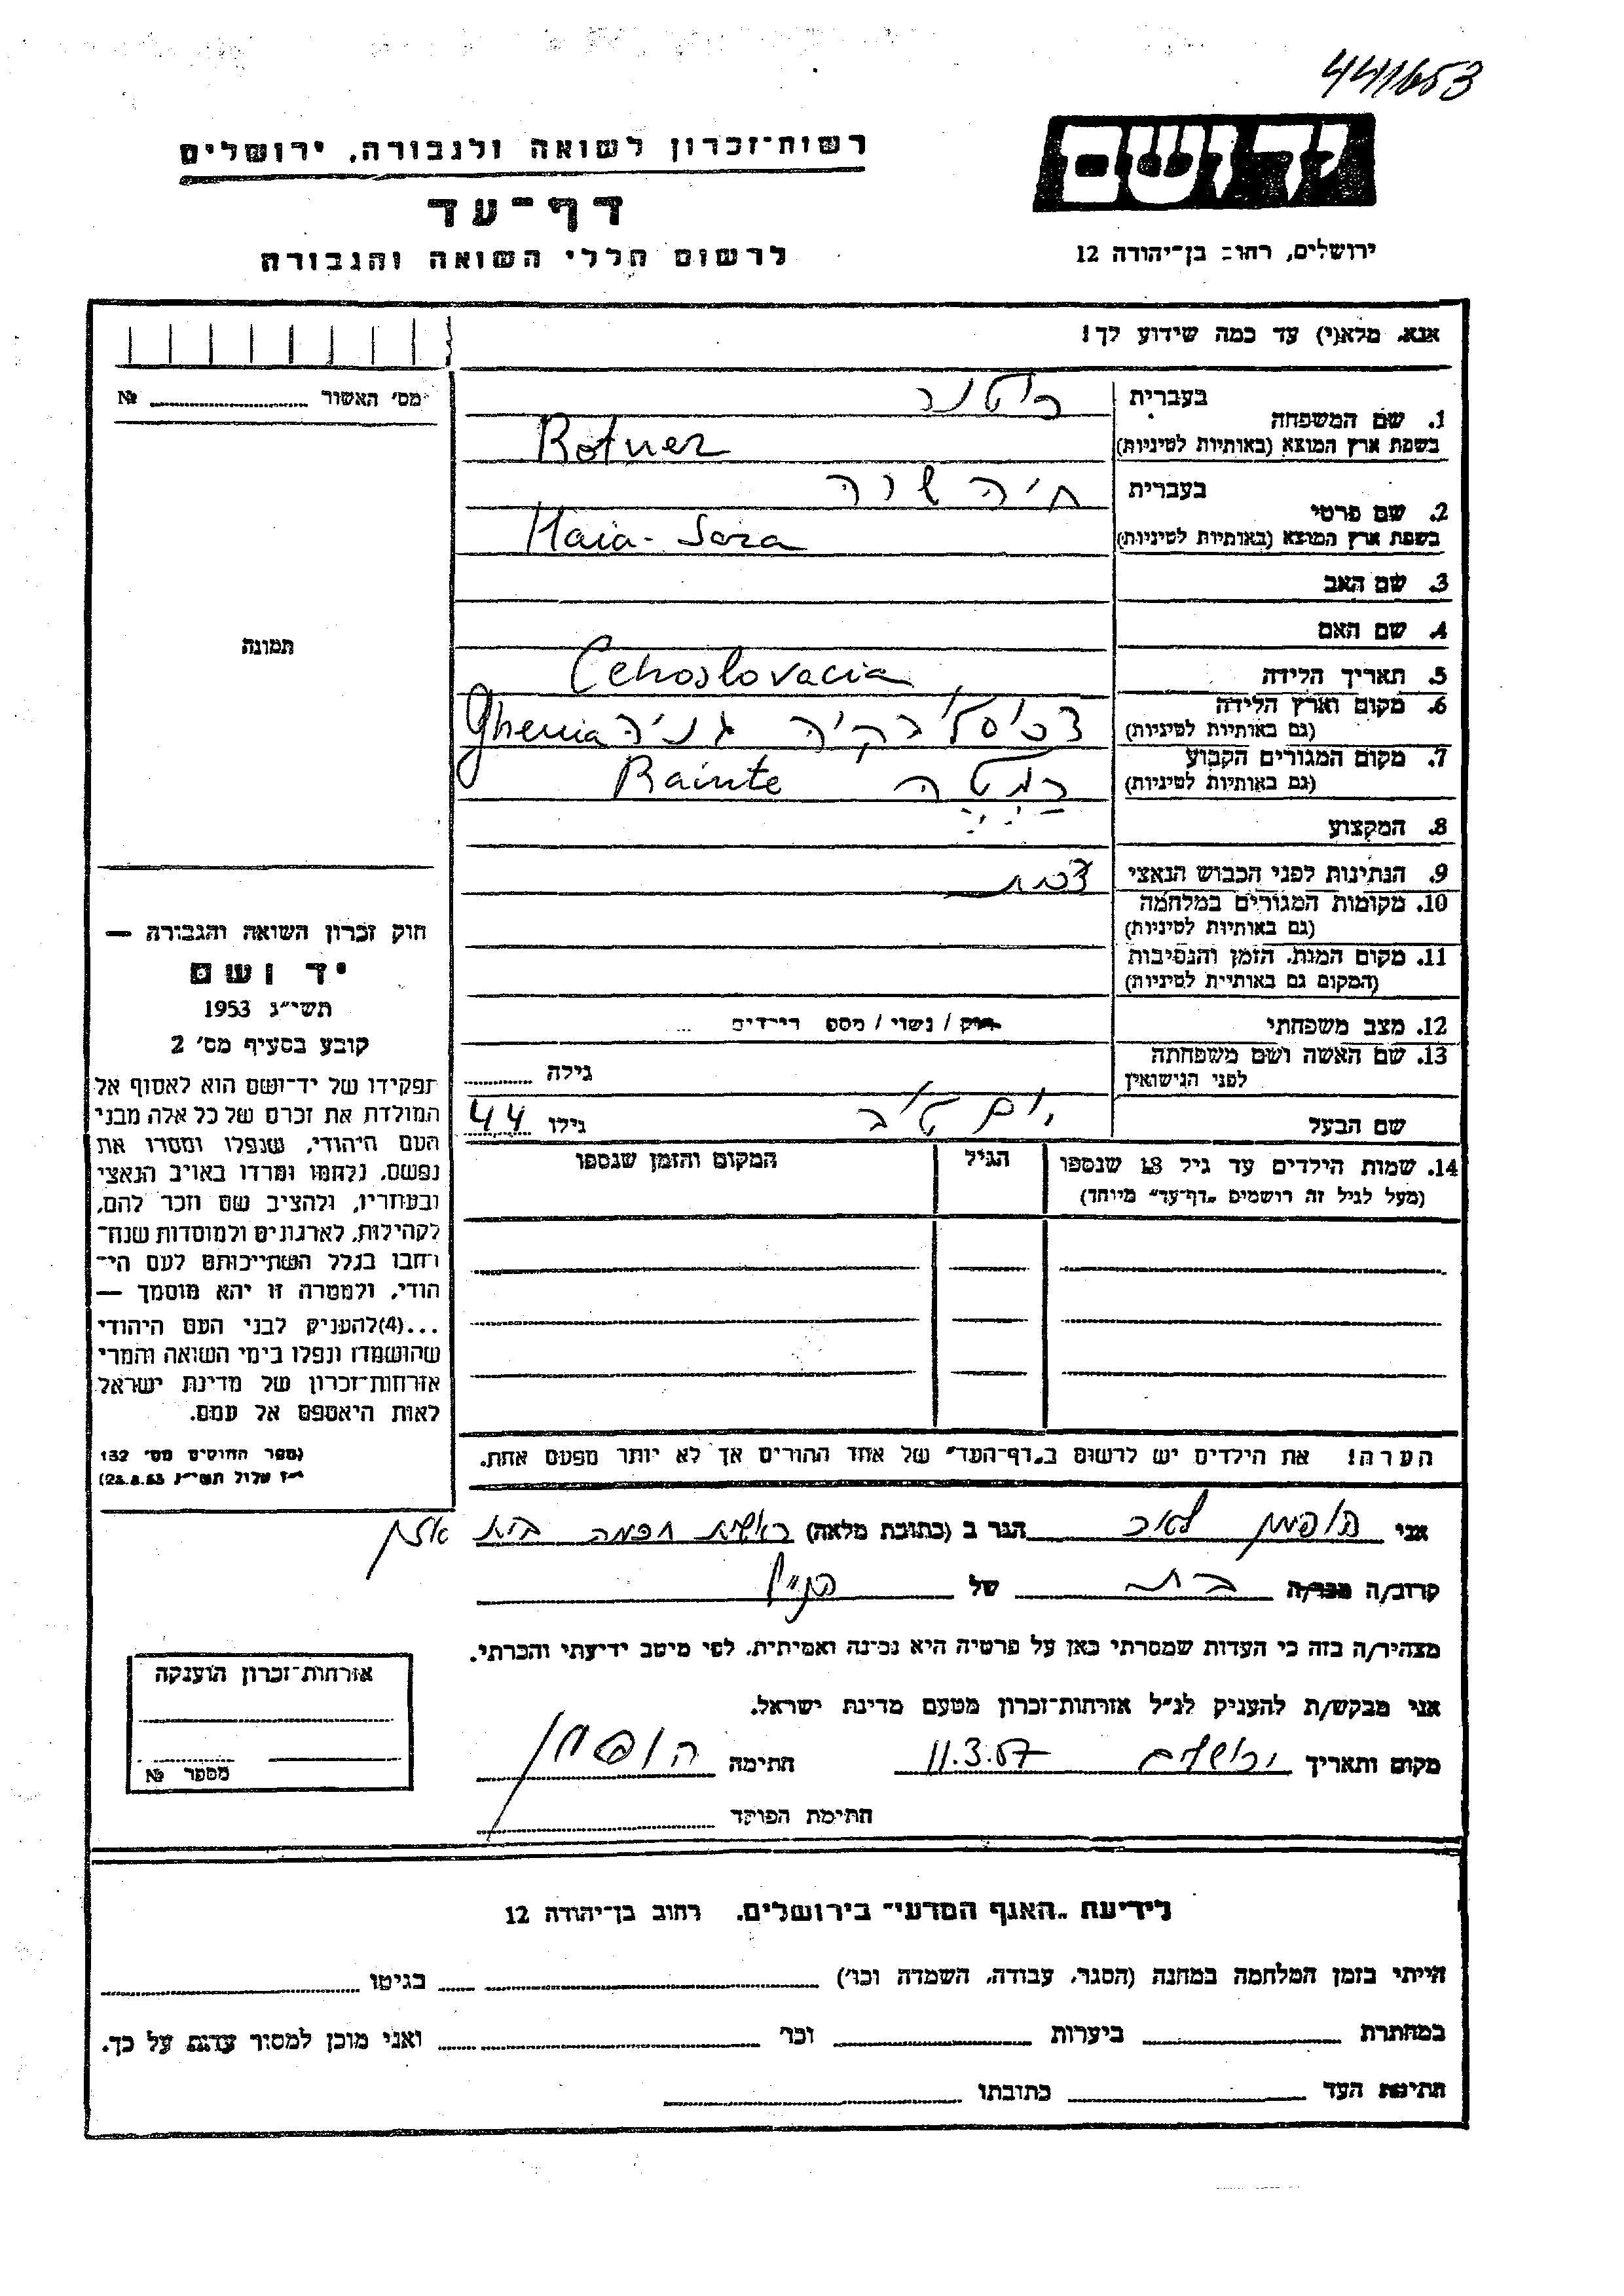 441653
רשות־זכרון לשואה ולגבורה, ירושלים
דף־עד
לרשום חללי השואה והגבורה
יד ושם
ירושלים, רחוב בן־יהודה 12
אנא, מלא(י) עד כמה שידוע לך!
מס' האשור № 
1. שם המשפחה
בעברית
רוטנר
בשפת ארץ המוצא (באותיות לטיניות)
Rotner
2. שם פרטי
בעברית
חיה שרה
בשפת ארץ המוצא (באותיות לטיניות)
Haia- Sara
3. שם האב
4. שם האם
תמונה
5. תאריך הלידה
Cehoslovacia
6. מקום וארץ הלידה
(גם באותיות לטיניות)
גניה Ghenia
7. מקום המגורים הקבוע
(גם באותיות לטיניות)
Rainte
8. המקצוע
9. הנתינות לפני הכבוש הנאצי
10. מקומות המגורים במלחמה
(גם באותיות לטיניות)
11. מקום המות, הזמן והנסיבות
(המקום גם באותיות לטיניות)
12. מצב משפחתי
רווק / נשוי / מספר הילדים
13. שם האשה ושם משפחתה
לפני הנישואין
גילה
שם הבעל
יום טוב
גילו 44
14. שמות הילדים עד גיל 18 שנספו
(מעל לגיל זה רושמים „דף־עד" מיוחד)
הגיל
המקום והזמן שנספו
הערה! את הילדים יש לרשום ב„דף־העד" של אחד ההורים אך לא יותר מפעם אחת.
חוק זכרון השואה והגבורה —
יד ושם
תשי"ג 1953
קובע בסעיף מס' 2
תפקידו של יד־ושם הוא לאסוף אל
המולדת את זכרם של כל אלה מבני
העם היהודי, שנפלו ומסרו את
נפשם, נלחמו ומרדו באויב הנאצי
ובעוזריו, ולהציב שם וזכר להם,
לקהילות, לארגונים ולמוסדות שנח־
רבו בגלל השתייכותם לעם הי־
הודי, ולמטרה זו יהא מוסמך —
...(4) להעניק לבני העם היהודי
שהושמדו ונפלו בימי השואה והמרי
אזרחות־זכרון של מדינת ישראל
לאות היאספם אל עמם.
(ספר החוקים מס' 132
י"ז אלול תשי"ג 28.8.53)
אני הופמן לאיב הגר ב (כתובת מלאה) ראשית חכמה בית
קרוב/ה מכר/ה בת של הנ"ל
מצהיר/ה בזה כי העדות שמסרתי כאן על פרטיה היא נכונה ואמיתית, לפי מיטב ידיעתי והכרתי.
אני מבקש/ת להעניק לנ"ל אזרחות־זכרון מטעם מדינת ישראל.
מקום ותאריך ירושלים 11.3.57 חתימה הופמן
חתימת הפוקד
אזרחות־זכרון הוענקה
מספר №
לידיעת „האגף המדעי" בירושלים, רחוב בן־יהודה 12
הייתי בזמן המלחמה במחנה (הסגר, עבודה, השמדה וכו') בגיטו
במחתרת ביערות וכו' ואני מוכן למסור עדות על כך.
חתימת העד כתובתו